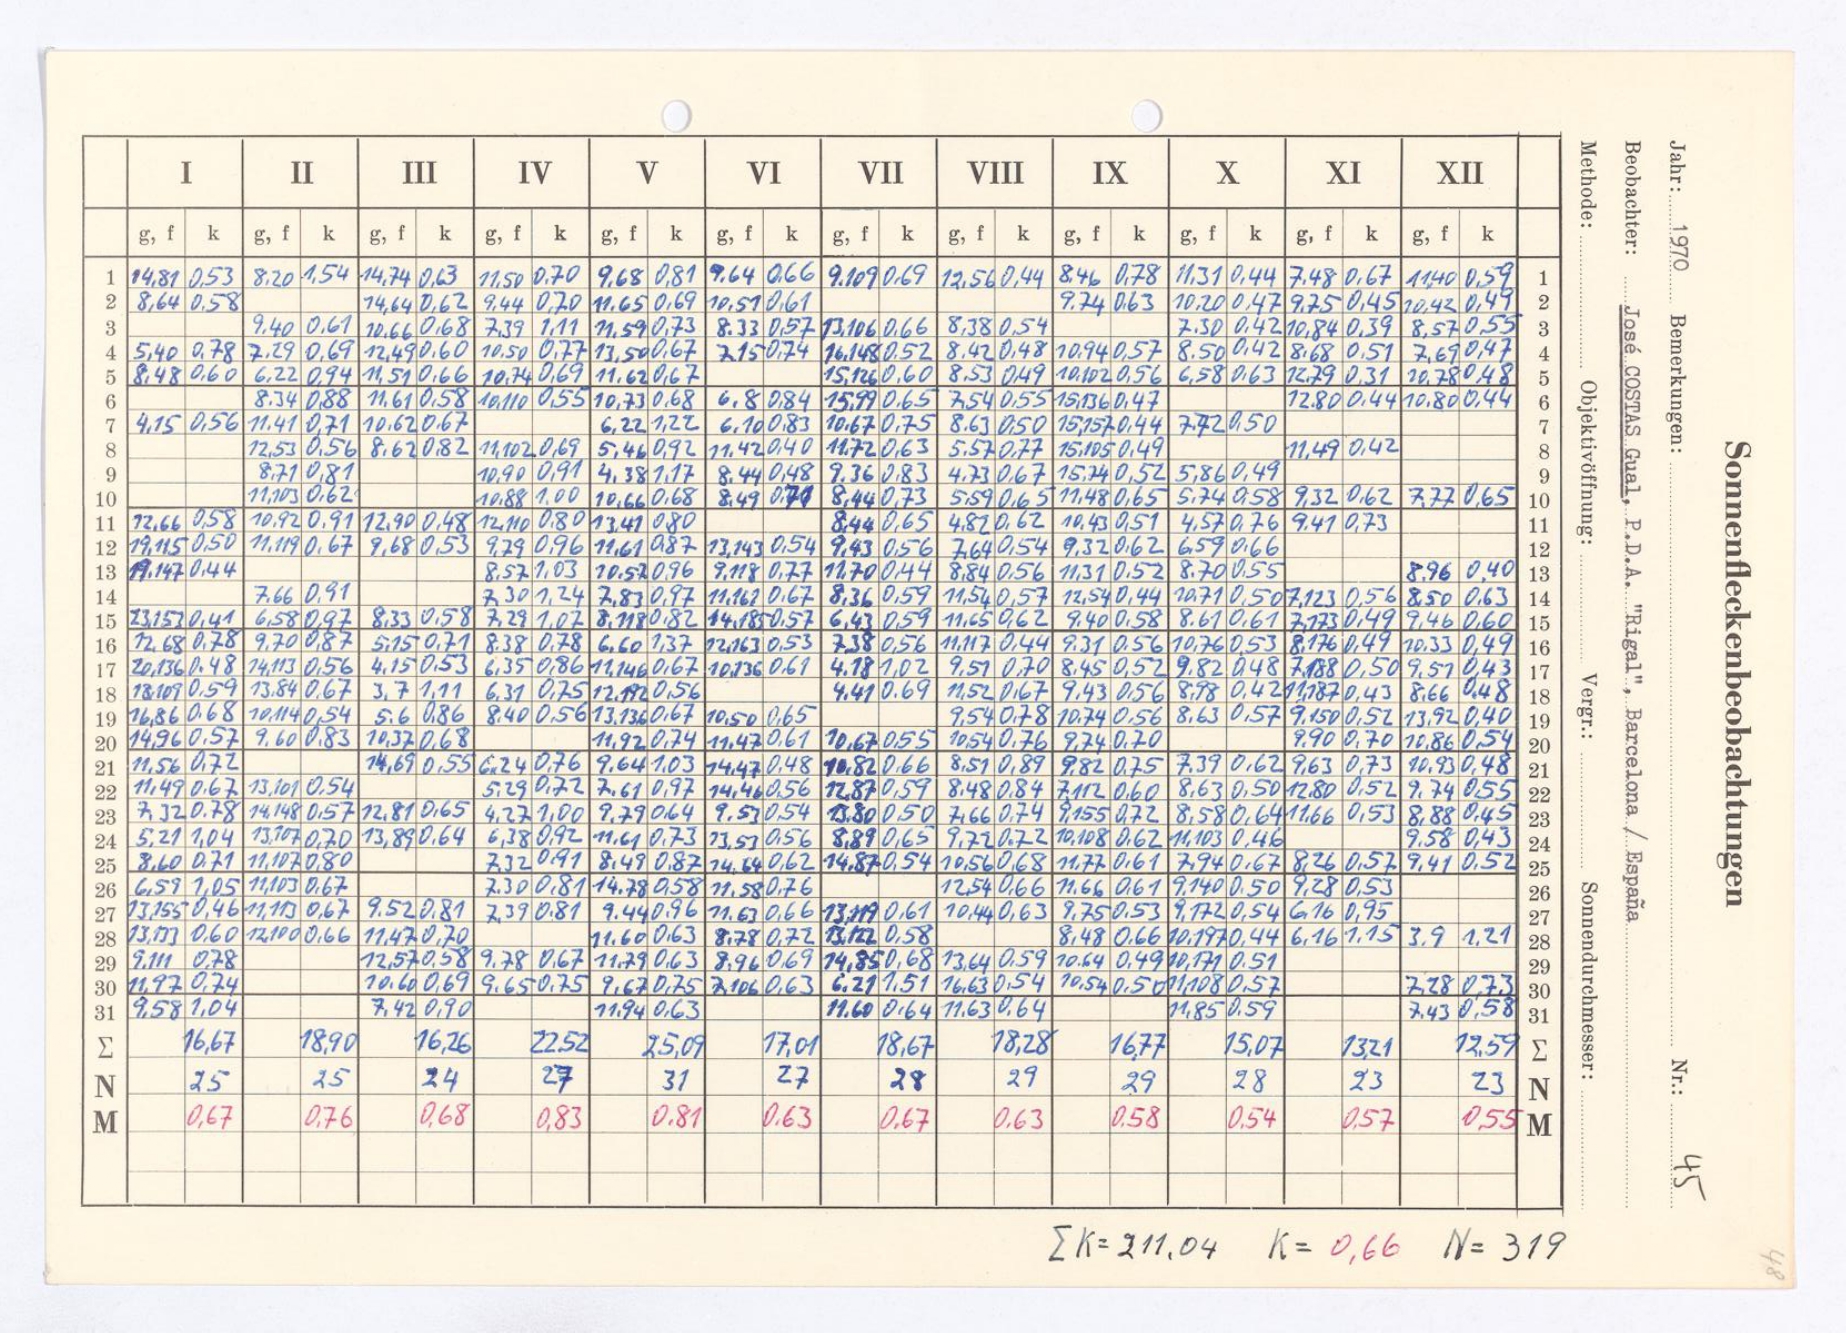 Sonnenfleckenbeobachtungen
Jahr: 1970 Bemerkungen: Nr.: 45
Beobachter: José COSTAS Gual, P.D.A. "Rigal", Barcelona / España
Methode: Objektivöffnung: Vergr.: Sonnendurchmesser:
I II III IV V VI VII VIII IX X XI XII
g, f k g, f k g, f k g, f k g, f k g, f k g, f k g, f k g, f k g, f k g, f k g, f k
1 14,81 0,53 8,20 1,54 14,74 0,63 11,50 0,70 9,68 0,81 9,64 0,66 9,109 0,69 12,56 0,44 8,46 0,78 11,31 0,44 7,48 0,67 11,40 0,59 1
2 8,64 0,58 14,64 0,62 9,44 0,70 11,65 0,69 10,51 0,61 9,74 0,63 10,20 0,47 9,75 0,45 10,42 0,49 2
3 9,40 0,61 10,66 0,68 7,39 1,11 11,59 0,73 8,33 0,57 13,106 0,66 8,38 0,54 7,30 0,42 10,84 0,39 8,57 0,55 3
4 5,40 0,78 7,29 0,69 12,49 0,60 10,50 0,77 13,50 0,67 7,15 0,74 16,148 0,52 8,42 0,48 10,94 0,57 8,50 0,42 8,68 0,51 7,69 0,47 4
5 8,48 0,60 6,22 0,94 11,51 0,66 10,74 0,69 11,62 0,67 15,126 0,60 8,53 0,49 10,102 0,56 6,58 0,63 12,79 0,31 10,78 0,48 5
6 8,34 0,88 11,61 0,58 10,110 0,55 10,73 0,68 6,8 0,84 15,99 0,65 7,54 0,55 15,136 0,47 12,80 0,44 10,80 0,44 6
7 4,15 0,56 11,41 0,71 10,62 0,67 6,22 1,22 6,10 0,83 10,67 0,75 8,63 0,50 15,157 0,44 7,72 0,50 7
8 12,53 0,56 8,62 0,82 11,102 0,69 5,46 0,92 11,42 0,40 11,72 0,63 5,57 0,77 15,105 0,49 11,49 0,42 8
9 8,71 0,81 10,90 0,91 4,38 1,17 8,44 0,48 9,36 0,83 4,73 0,67 15,74 0,52 5,86 0,49 9
10 11,103 0,62 10,88 1,00 10,66 0,68 8,49 8,44 0,73 5,59 0,65 11,48 0,65 5,74 0,58 9,32 0,62 7,77 0,65 10
11 12,66 0,58 10,92 0,91 12,90 0,48 12,110 0,80 13,41 0,80 8,44 0,65 4,82 0,62 10,43 0,51 4,57 0,76 9,41 0,73 11
12 19,115 0,50 11,119 0,67 9,68 0,53 9,79 0,96 11,61 0,87 13,143 0,54 9,43 0,56 7,64 0,54 9,32 0,62 6,59 0,66 12
13 19,147 0,44 8,57 1,03 10,52 0,96 9,118 0,77 11,70 0,44 8,84 0,56 11,31 0,52 8,70 0,55 8,96 0,40 13
14 7,66 0,91 7,30 1,24 7,83 0,97 11,161 0,67 8,36 0,59 11,54 0,57 12,54 0,44 10,71 0,50 7,123 0,56 8,50 0,63 14
15 23,153 0,41 6,58 0,97 8,33 0,58 7,29 1,07 8,118 0,82 14,185 0,57 6,43 0,59 11,65 0,62 9,40 0,58 8,61 0,61 7,173 0,49 9,46 0,60 15
16 12,68 0,78 9,70 0,87 5,15 0,71 8,38 0,78 6,60 1,37 12,163 0,53 7,38 0,56 11,117 0,44 9,31 0,56 10,76 0,53 8,176 0,49 10,33 0,49 16
17 20,136 0,48 14,113 0,56 4,15 0,53 6,35 0,86 11,146 0,67 10,136 0,61 4,18 1,02 9,51 0,70 8,45 0,52 9,82 0,48 7,188 0,50 9,51 0,43 17
18 18,109 0,59 13,84 0,67 3,7 1,11 6,31 0,75 12,192 0,56 4,41 0,69 11,52 0,67 9,43 0,56 8,98 0,42 11,187 0,43 8,66 0,48 18
19 16,86 0,68 10,114 0,54 5,6 0,86 8,40 0,56 13,136 0,67 10,50 0,65 9,54 0,78 10,74 0,56 8,63 0,57 9,150 0,52 13,92 0,40 19
20 14,96 0,57 9,60 0,83 10,37 0,68 11,92 0,74 11,47 0,61 10,67 0,55 10,54 0,76 9,74 0,70 9,90 0,70 10,86 0,54 20
21 11,56 0,72 14,69 0,55 6,24 0,76 9,64 1,03 14,47 0,48 10,82 0,66 8,51 0,89 9,82 0,75 7,39 0,62 9,63 0,73 10,93 0,48 21
22 11,49 0,67 13,101 0,54 5,29 0,72 7,61 0,97 14,46 0,56 12,87 0,59 8,48 0,84 7,112 0,60 8,63 0,50 12,80 0,52 9,74 0,55 22
23 7,32 0,78 14,148 0,57 12,81 0,65 4,27 1,00 9,79 0,64 9,53 0,54 13,80 0,50 7,66 0,74 9,155 0,72 8,58 0,64 11,66 0,53 8,88 0,45 23
24 5,21 1,04 13,107 0,70 13,89 0,64 6,38 0,92 11,61 0,73 13,53 0,56 8,89 0,65 9,72 0,72 10,108 0,62 11,103 0,46 9,58 0,43 24
25 8,60 0,71 11,107 0,80 7,32 0,91 8,49 0,87 14,64 0,62 14,87 0,54 10,56 0,68 11,77 0,61 7,94 0,67 8,26 0,57 9,41 0,52 25
26 6,59 1,05 11,103 0,67 7,30 0,81 14,78 0,58 11,58 0,76 12,54 0,66 11,66 0,61 9,140 0,50 9,28 0,53 26
27 13,155 0,46 11,113 0,67 9,52 0,81 7,39 0,81 9,44 0,96 11,63 0,66 13,119 0,61 10,44 0,63 9,75 0,53 9,172 0,54 6,16 0,95 27
28 13,133 0,60 12,100 0,66 11,47 0,70 11,60 0,63 8,78 0,72 13,122 0,58 8,48 0,66 10,197 0,44 6,16 1,15 3,9 1,21 28
29 9,111 0,78 12,57 0,58 9,78 0,67 11,79 0,63 8,96 0,69 14,85 0,68 13,64 0,59 10,64 0,49 10,171 0,51 29
30 11,97 0,74 10,60 0,69 9,65 0,75 9,67 0,75 7,106 0,63 6,21 1,51 16,63 0,54 10,54 0,50 11,108 0,57 7,28 0,73 30
31 9,58 1,04 7,42 0,90 11,94 0,63 11,60 0,64 11,63 0,64 11,85 0,59 7,43 0,58 31
Σ 16,67 18,90 16,26 22,52 25,09 17,01 18,67 18,28 16,77 15,07 13,21 12,59 Σ
N 25 25 24 27 31 27 28 29 29 28 23 23 N
M 0,67 0,76 0,68 0,83 0,81 0,63 0,67 0,63 0,58 0,54 0,57 0,55 M
ΣK= 211,04 K= 0,66 N= 319
48